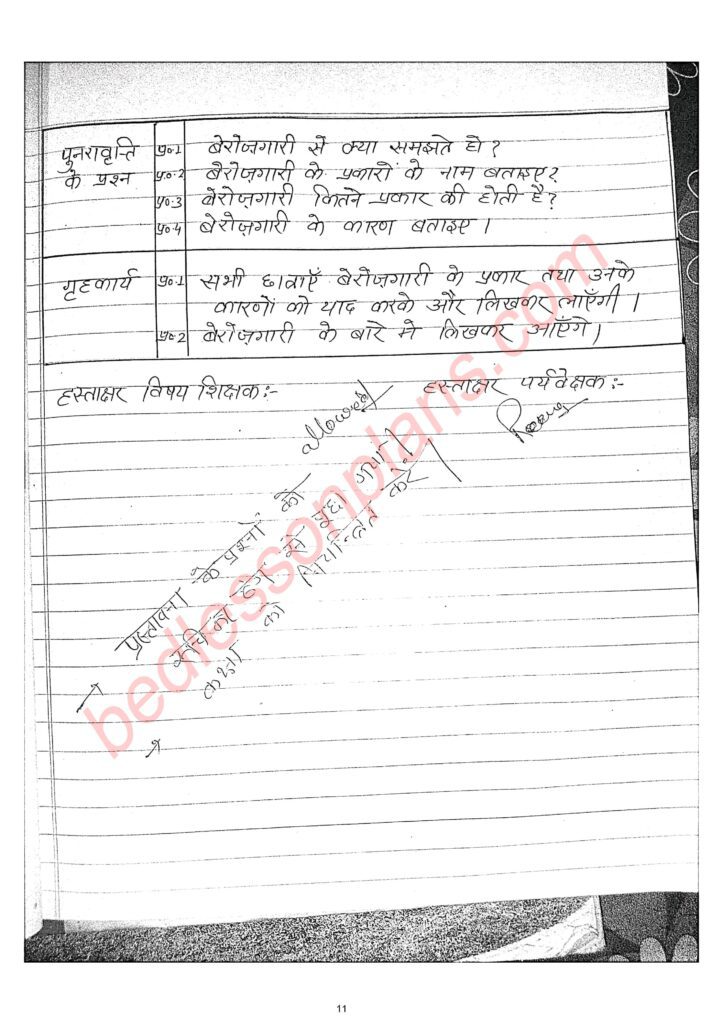 पुनरावृत्ति के प्रश्न
प्र०1 बेरोज़गारी से क्या समझते हो?
प्र०2 बेरोज़गारी के प्रकारों के नाम बताइए?
प्र०3 बेरोज़गारी कितने प्रकार की होती है?
प्र०4 बेरोज़गारी के कारण बताइए।
गृहकार्य
प्र०1 सभी छात्राएँ बेरोज़गारी के प्रकार तथा उनके
कारणों को याद करके और लिखकर लाएँगी।
प्र०2 बेरोज़गारी के बारे मे लिखकर आएँगे।
हस्ताक्षर विषय शिक्षक:- हस्ताक्षर पर्यवेक्षक:-
Allowed
प्रस्तावना के प्रश्नों को
रुचिकर ढंग से पूछा गया।
कक्षा को नियन्त्रित करें
bedlessonplans.com
11